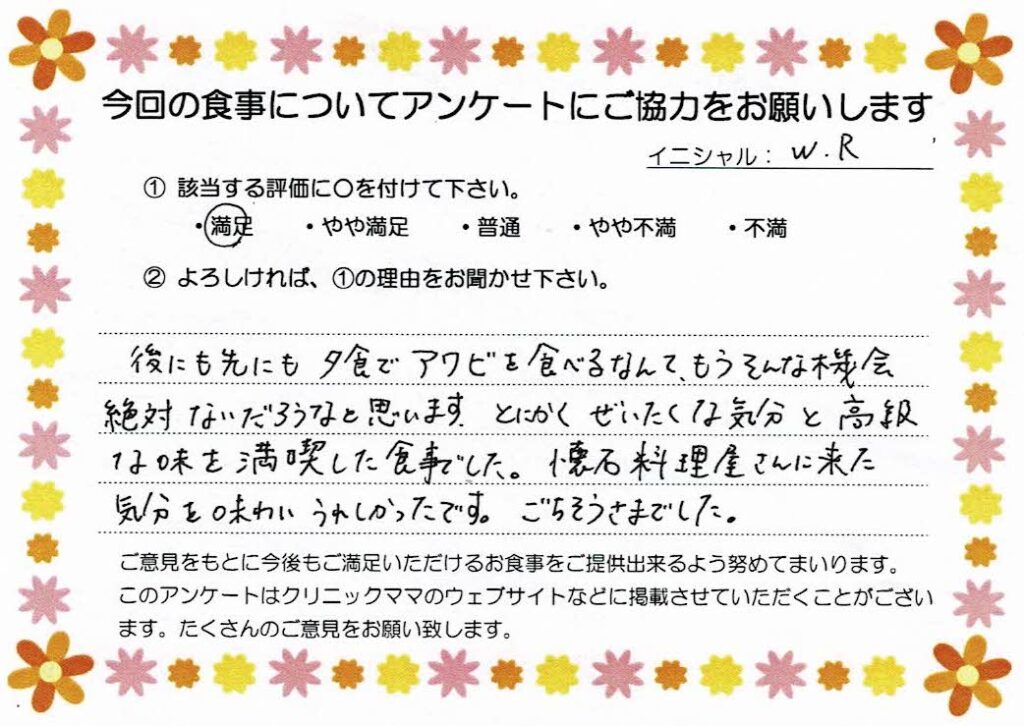 今回の食事についてアンケートにご協力をお願いします
イニシャル： W.R
① 該当する評価に〇を付けて下さい。
・満足 ・やや満足 ・普通 ・やや不満 ・不満
② よろしければ、①の理由をお聞かせ下さい。
後にも先にも 夕食で アワビを食べるなんて、もうそんな機会
絶対ないだろうなと思います。とにかく ぜいたくな気分と高級
な味を満喫した食事でした。懐石料理屋さんに来た
気分を味わい うれしかったです。ごちそうさまでした。
ご意見をもとに今後もご満足いただけるお食事をご提供出来るよう努めてまいります。
このアンケートはクリニックママのウェブサイトなどに掲載させていただくことがござい
ます。たくさんのご意見をお願い致します。